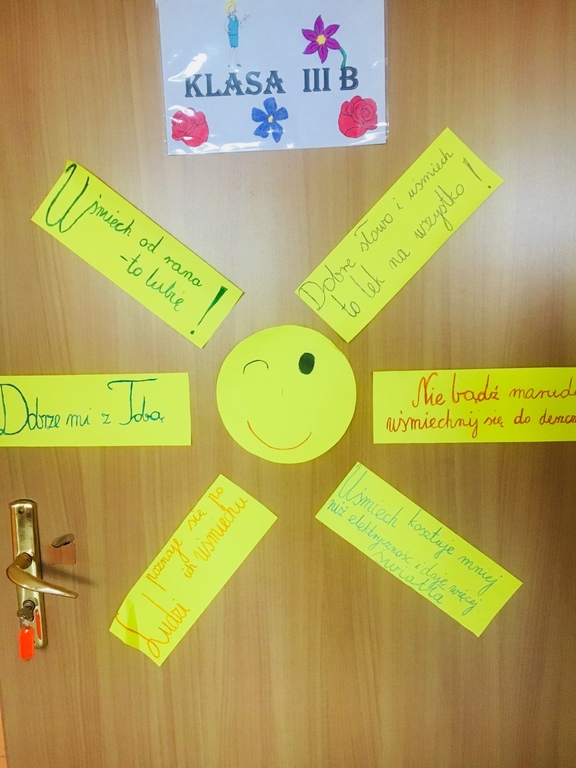 KLASA III B
Uśmiech od rana
-to lubię!
Dobre słowo i uśmiech
to lek na wszystko!
Dobrze mi z Tobą
Nie bądź
uśmiechnij się do
Ludzi poznaje się po
ich uśmiechu
Uśmiech kosztuje mniej
niż elektryczność i daje więcej
światła